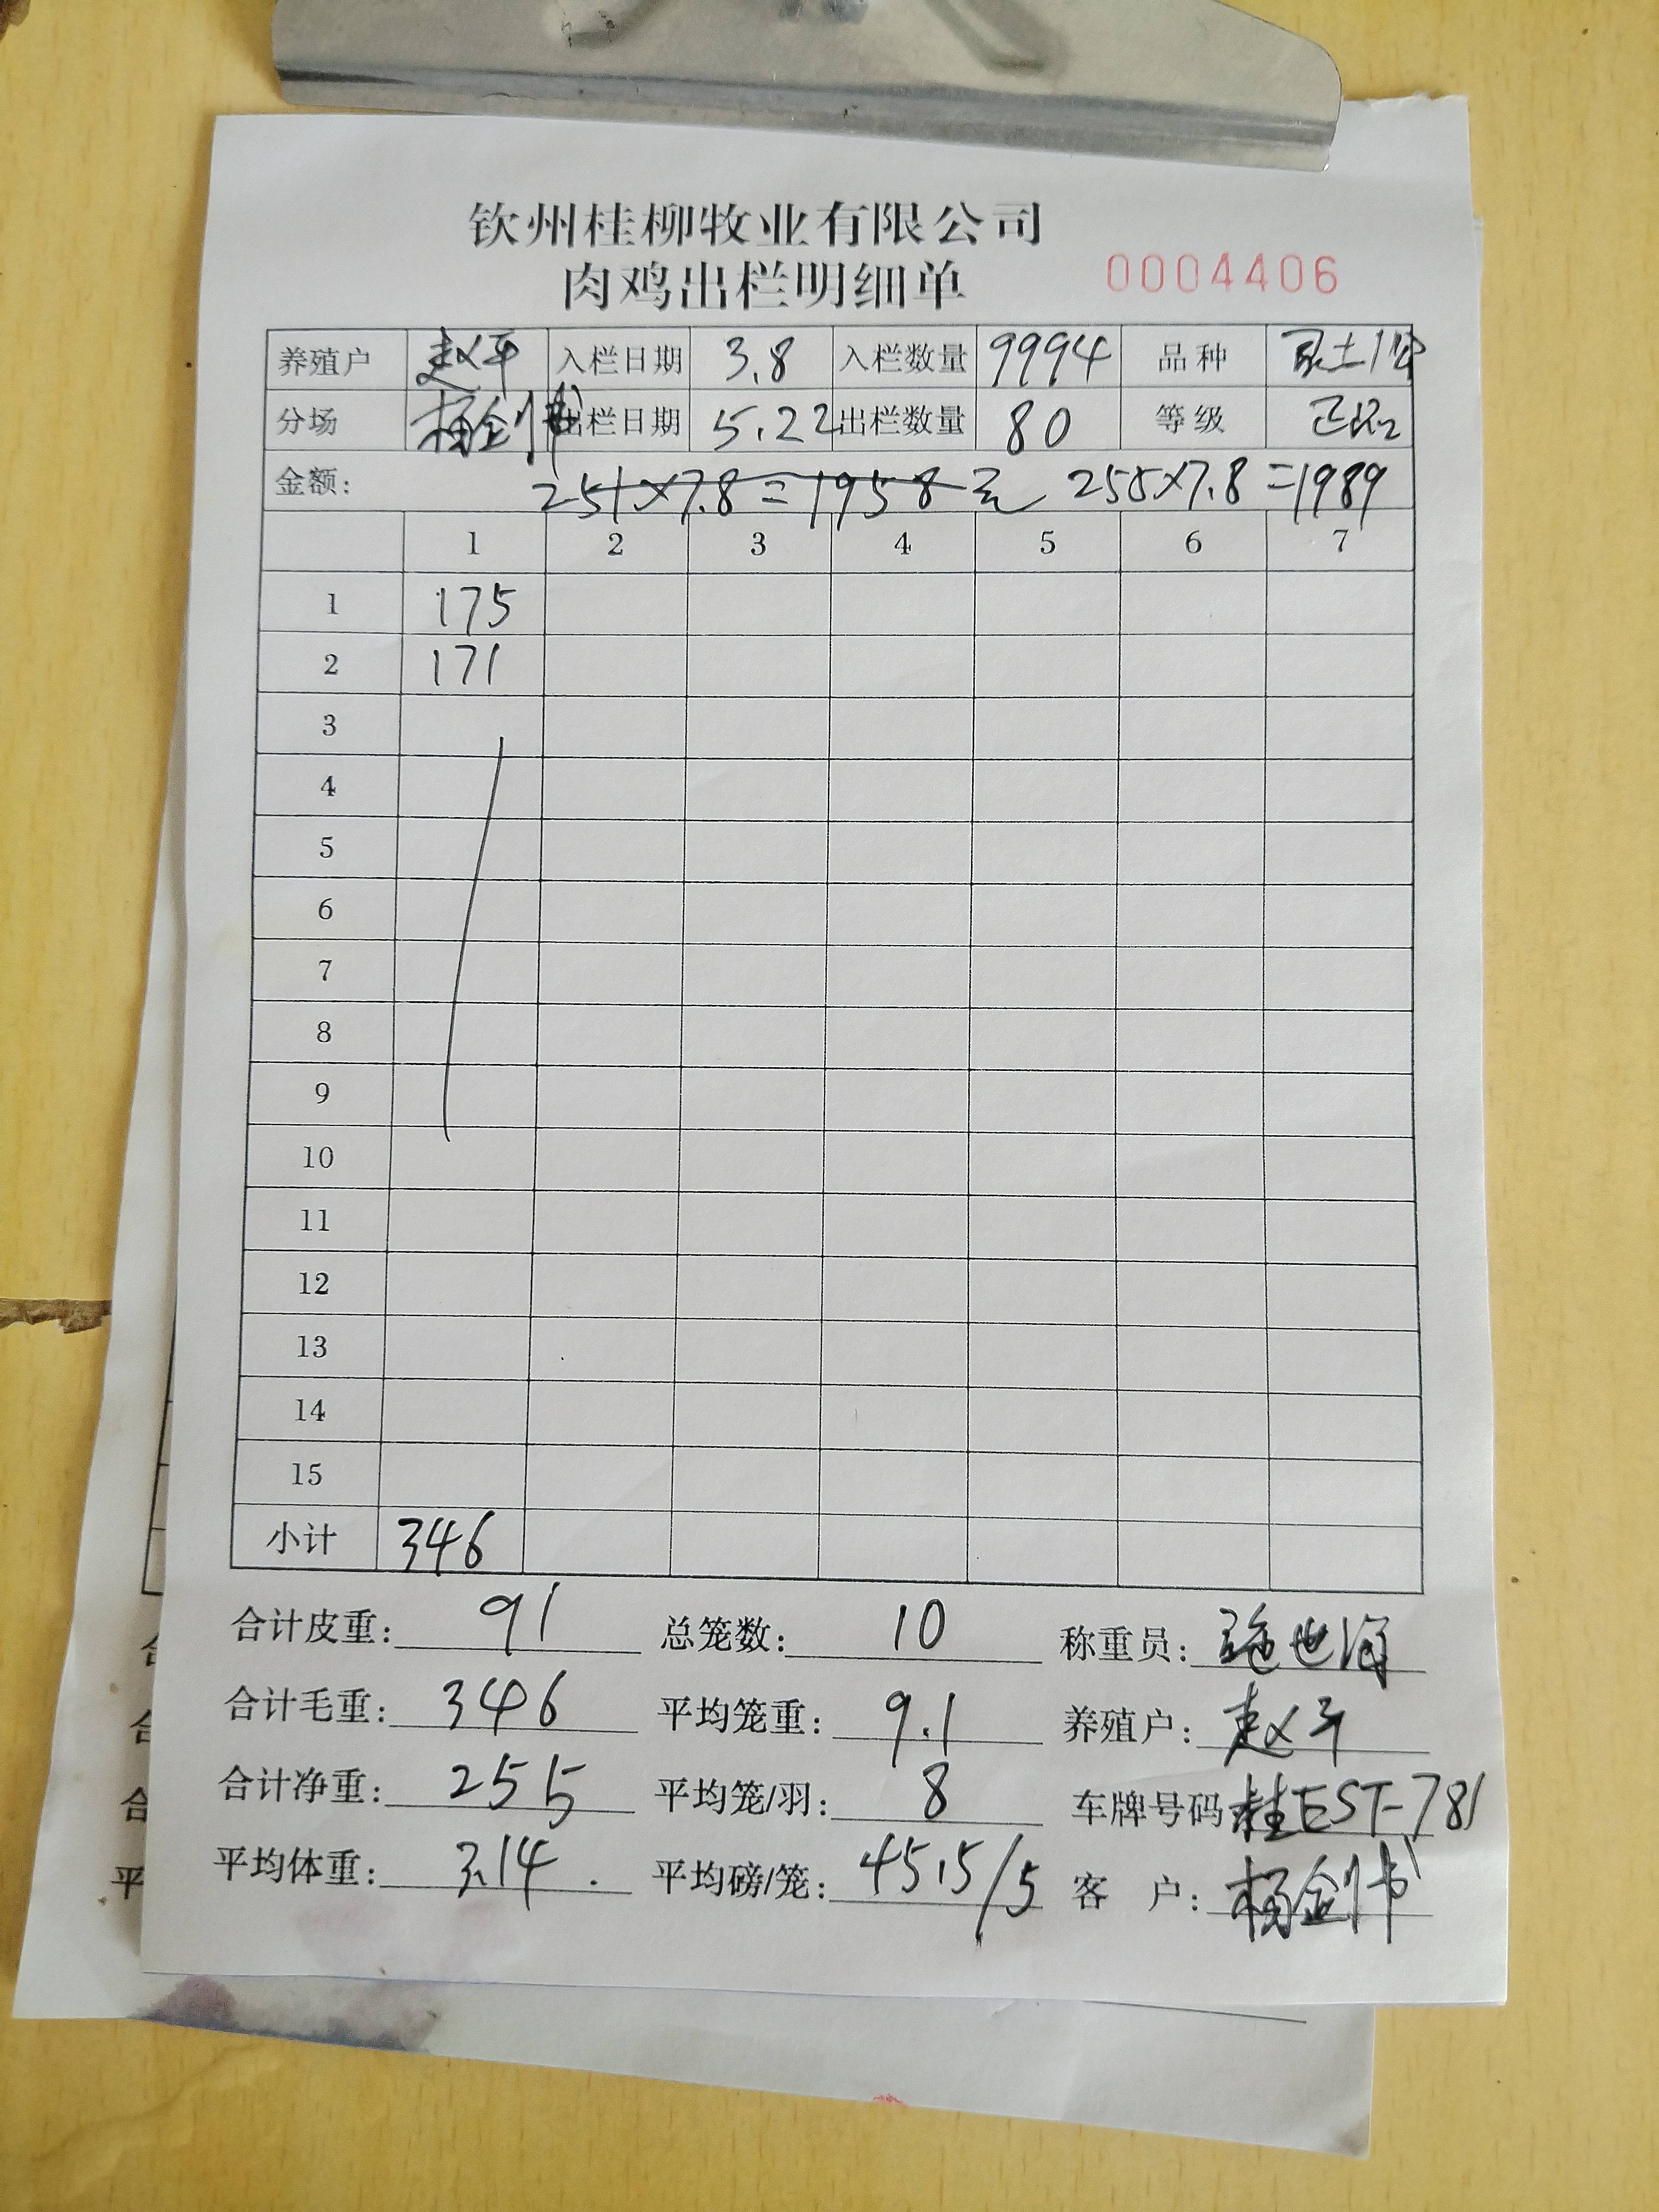 钦州桂柳牧业有限公司
肉鸡出栏明细单 0004406
养殖户 赵平 入栏日期 3.8 入栏数量 9994 品种 土1公
分场 杨剑 出栏日期 5.22 出栏数量 80 等级 正品
金额: 251×7.8=1958元 255×7.8=1989
1 2 3 4 5 6 7
1 175
2 171
3
4
5
6
7
8
9
10
11
12
13
14
15
小计 346
合计皮重: 91 总笼数: 10 称重员: 世海
合计毛重: 346 平均笼重: 9.1 养殖户: 赵平
合计净重: 255 平均笼/羽: 8 车牌号码 桂EST-781
平均体重: 3.14 . 平均磅/笼: 45.5/5 客 户: 杨剑
合
合
合
平